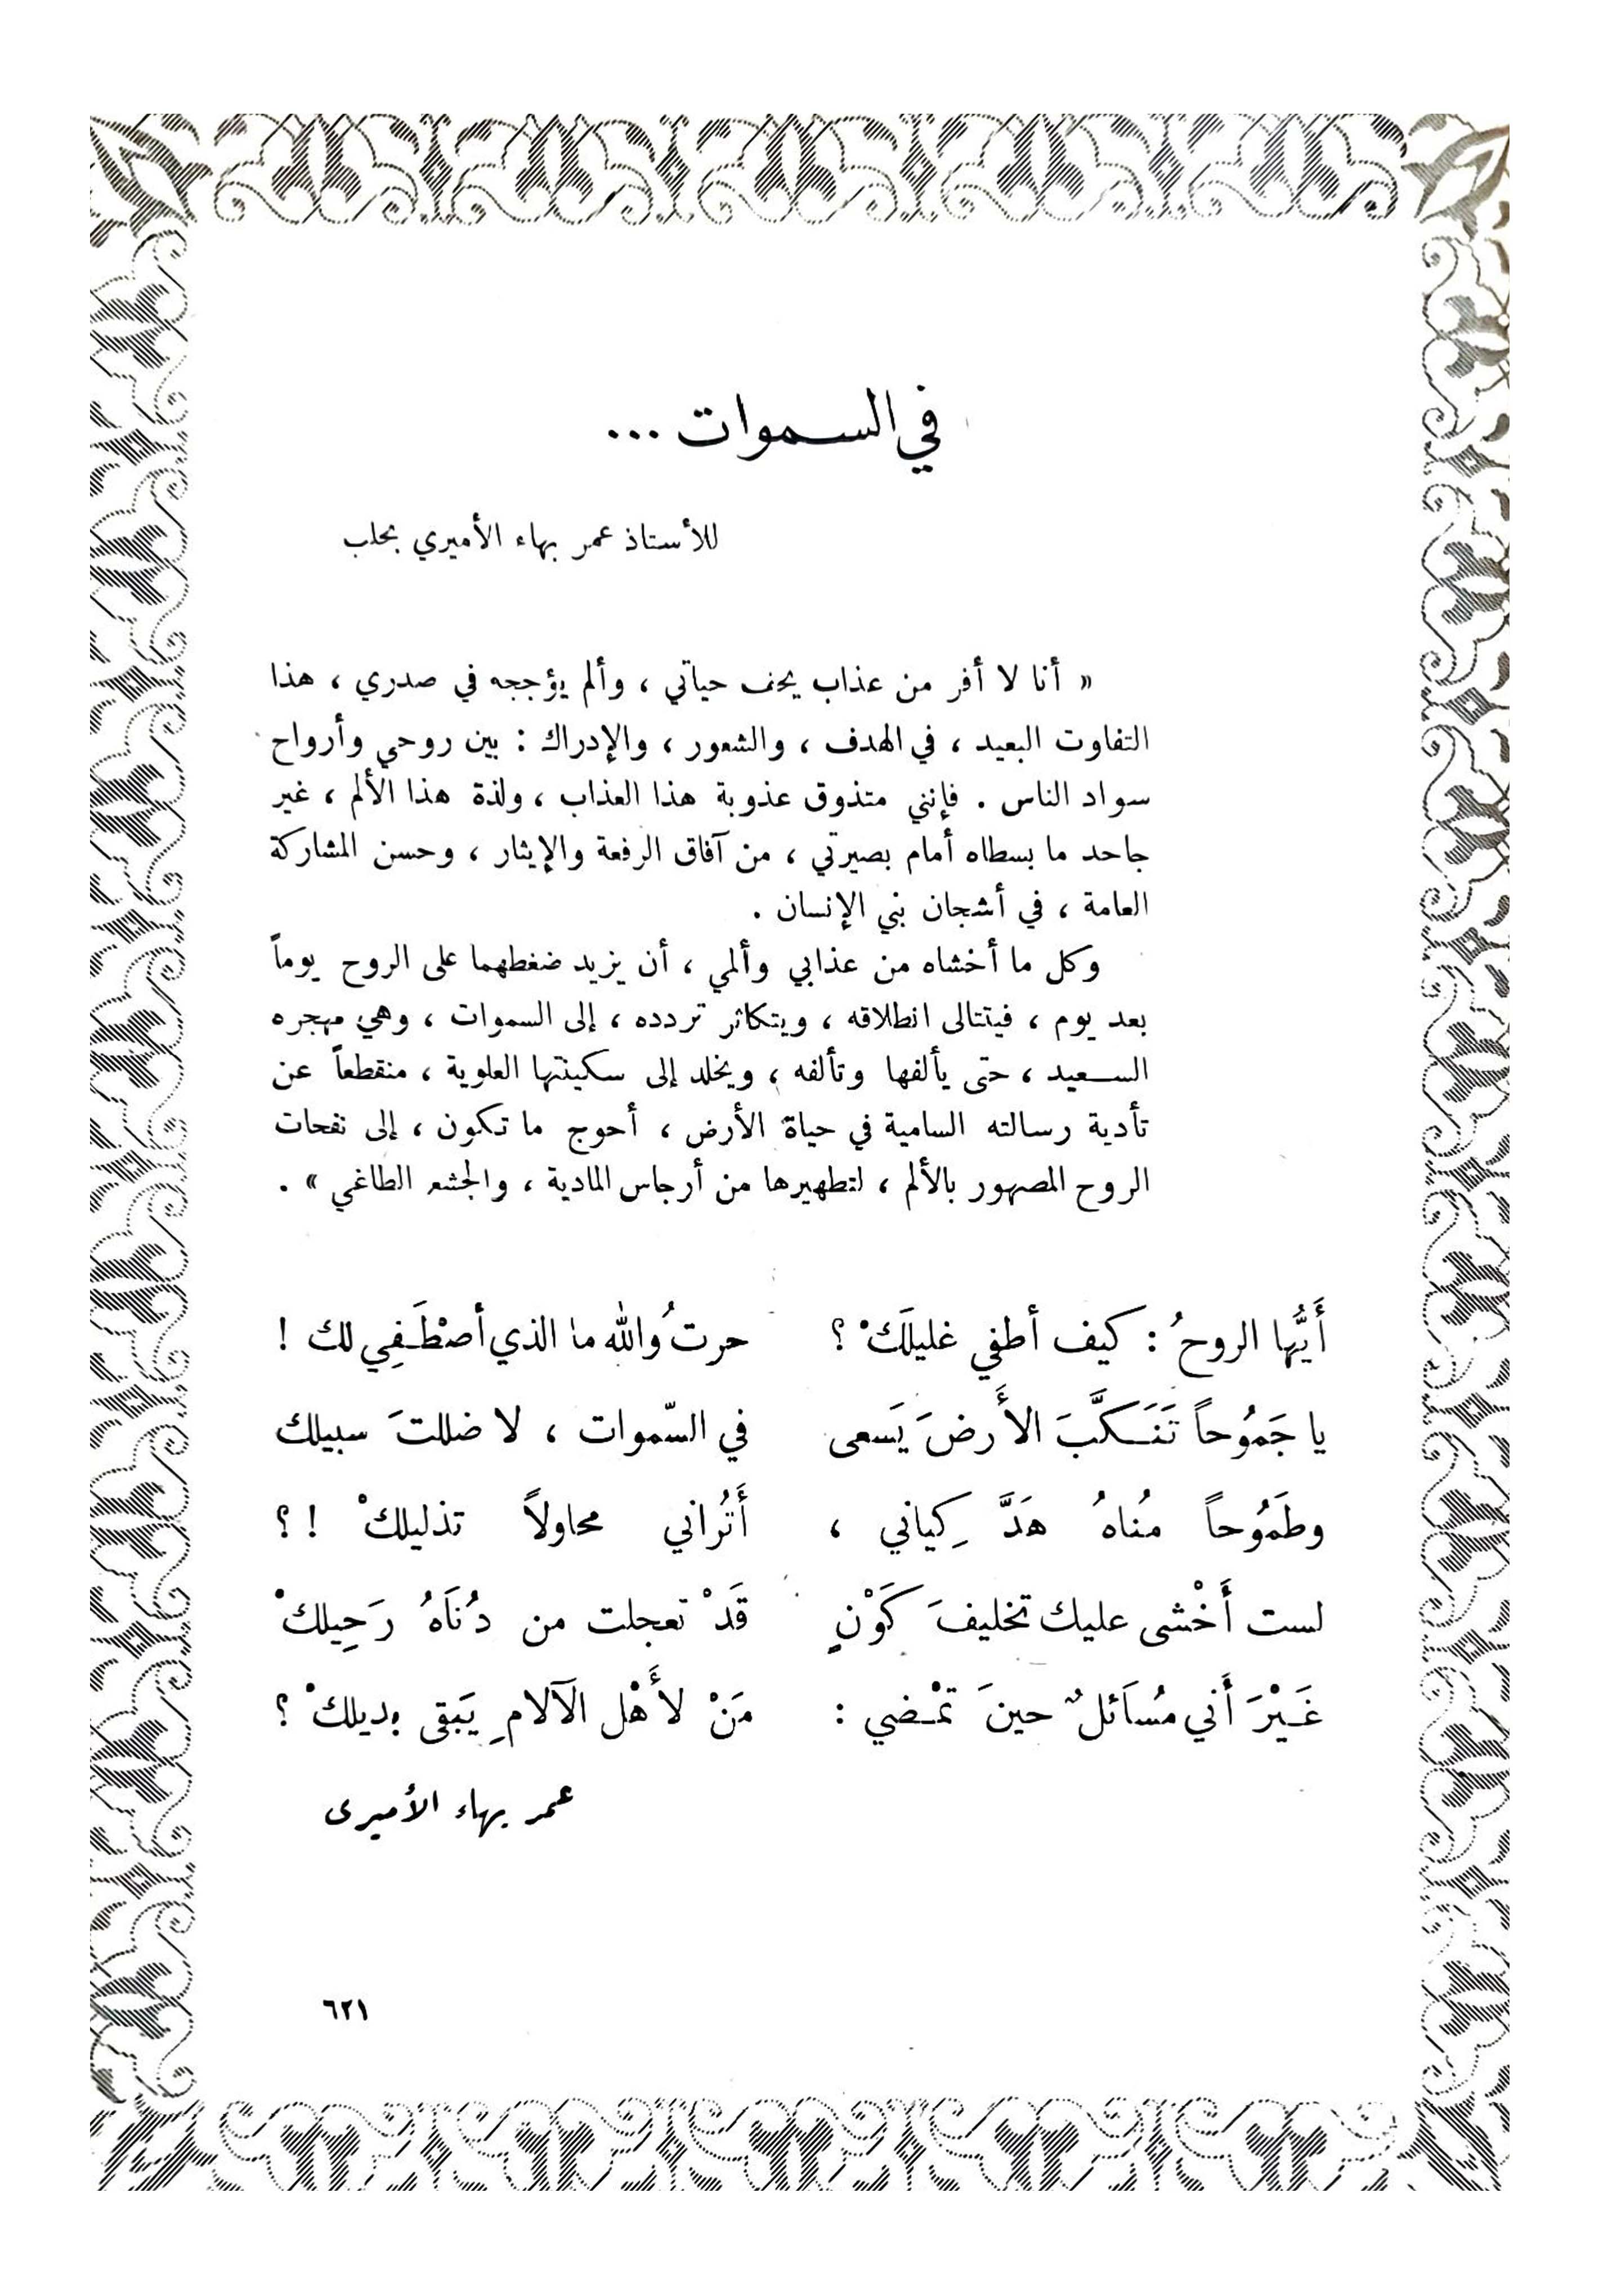 في السموات ...
للأستاذ عمر بهاء الأميري بحلب
« أنا لا أفر من عذاب يحف حياتي ، وألم يؤججه في صدري ، هذا
التفاوت البعيد ، في الهدف ، والشعور ، والإدراك : بين روحي وأرواح
سواد الناس . فإنني متذوق عذوبة هذا العذاب ، ولذة هذا الألم ، غير
جاحد ما بسطاه أمام بصيرتي ، من آفاق الرفعة والإيثار ، وحسن المشاركة
العامة ، في أشجان بني الإنسان .
وكل ما أخشاه من عذابي وألمي ، أن يزيد ضغطهما على الروح يوماً
بعد يوم ، فيتتالى انطلاقه ، ويتكاثر تردده ، إلى السموات ، وهي مهجره
السعيد ، حتى يألفها وتألفه ، ويخلد إلى سكينتها العلوية ، منقطعاً عن
تأدية رسالته السامية في حياة الأرض ، أحوج ما تكون ، إلى نفحات
الروح المصهور بالألم ، لتطهيرها من أرجاس المادية ، والجشع الطاغي » .
أَيُّها الروحُ : كيف أطفي غليلَكْ ؟ حرتُ والله ما الذي أصْطَفِي لك !
يا جَمُوحاً تَنَكَّبَ الأَرضَ يَسعى في السّموات ، لا ضللتَ سبيلك
وطَمُوحاً مُناهُ هَدَّ كِياني ، أَتُراني محاولاً تذليلكْ ! ؟
لست أَخْشى عليك تخليفَ كَوْنٍ قَدْ تعجلت من دُنَاهُ رَحِيلكْ
غَيْرَ أَني مُسَائلٌ حينَ تمْضي : مَنْ لأَهْل الآلامِ يَبقى بديلكْ ؟
عمر بهاء الأميرى
٦٢١